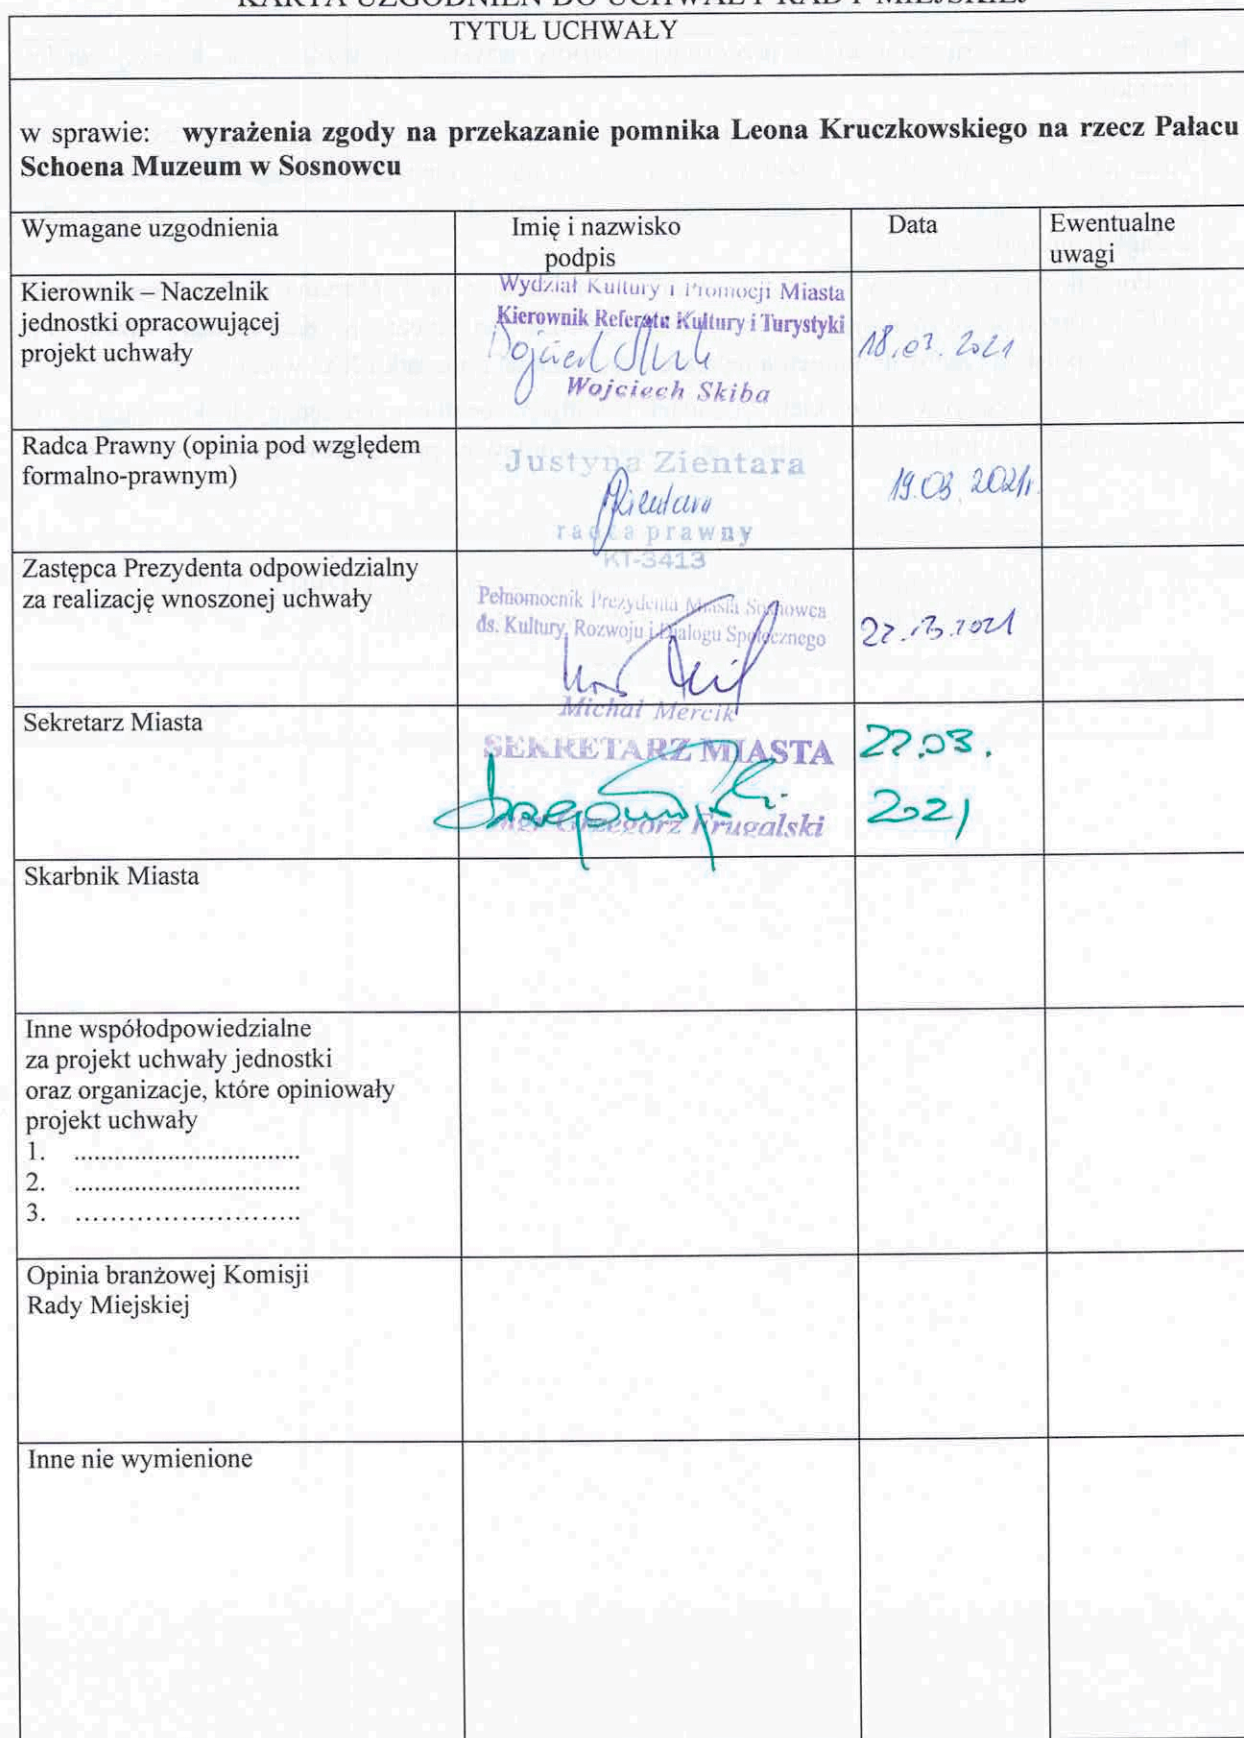 KARTA UZGODNIEŃ DO UCHWAŁY RADY MIEJSKIEJ
TYTUŁ UCHWAŁY
w sprawie: wyrażenia zgody na przekazanie pomnika Leona Kruczkowskiego na rzecz Pałacu
Schoena Muzeum w Sosnowcu
Wymagane uzgodnienia
Imię i nazwisko
podpis
Data
Ewentualne
uwagi
Kierownik – Naczelnik
jednostki opracowującej
projekt uchwały
Wydział Kultury i Promocji Miasta
Kierownik Referatu Kultury i Turystyki
Wojciech Skiba
18.03.2021
Radca Prawny (opinia pod względem
formalno-prawnym)
Justyna Zientara
Zientara
radca prawny
KT-3413
19.03.2021r.
Zastępca Prezydenta odpowiedzialny
za realizację wnoszonej uchwały
Pełnomocnik Prezydenta Miasta Sosnowca
ds. Kultury, Rozwoju i Dialogu Społecznego
Michał Mercik
22.03.2021
Sekretarz Miasta
SEKRETARZ MIASTA
mgr Grzegorz Frugalski
22.03.
2021
Skarbnik Miasta
Inne współodpowiedzialne
za projekt uchwały jednostki
oraz organizacje, które opiniowały
projekt uchwały
1. ..................................
2. ..................................
3. ..................................
Opinia branżowej Komisji
Rady Miejskiej
Inne nie wymienione